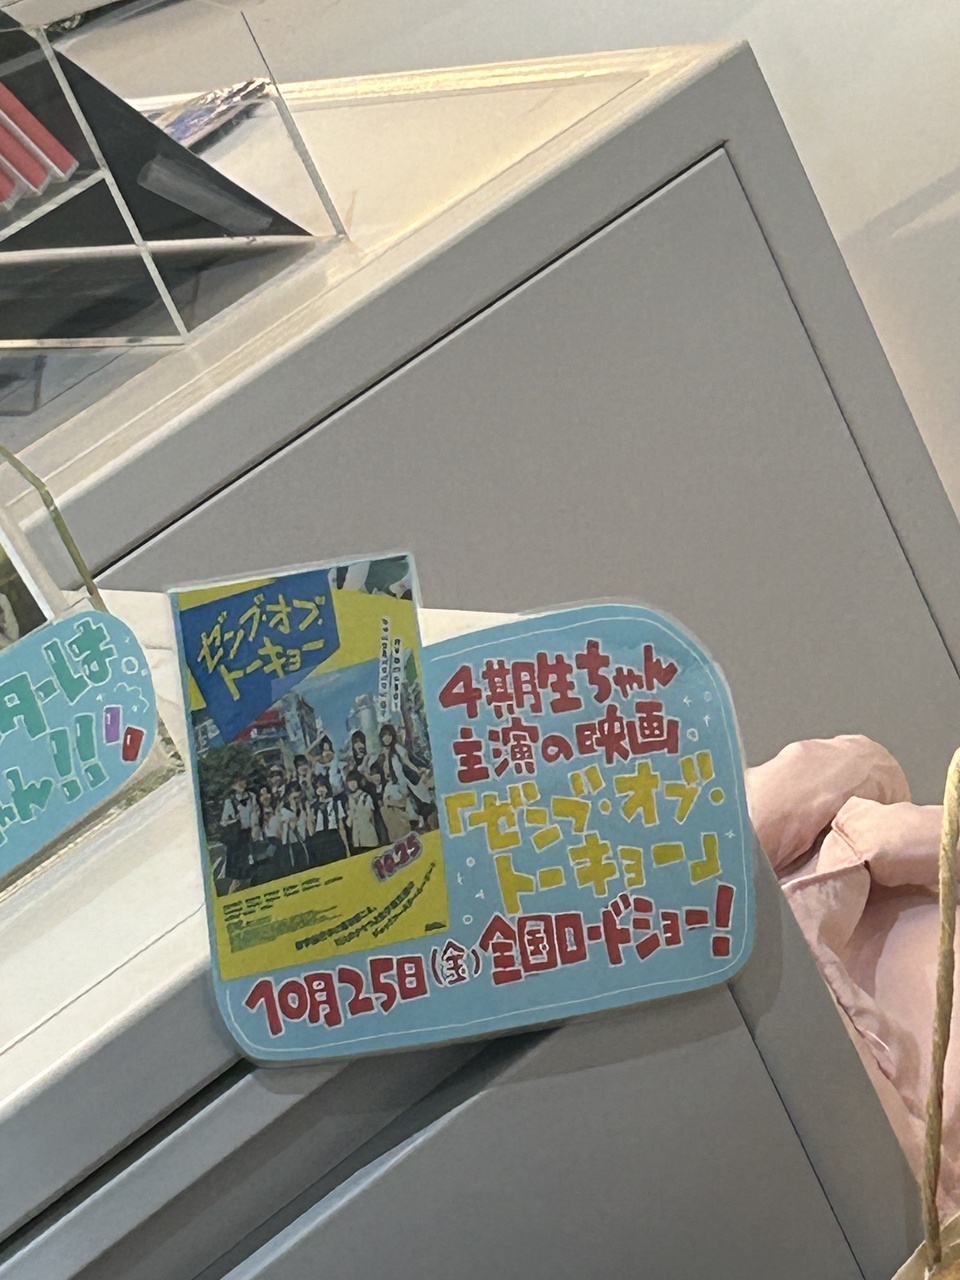 ゼンブ・オブ・
トーキョー
10.25
4期生ちゃん
主演の映画
「ゼンブ・オブ・
トーキョー」
10月25日(金)全国ロードショー!
ターは
ゃん!!